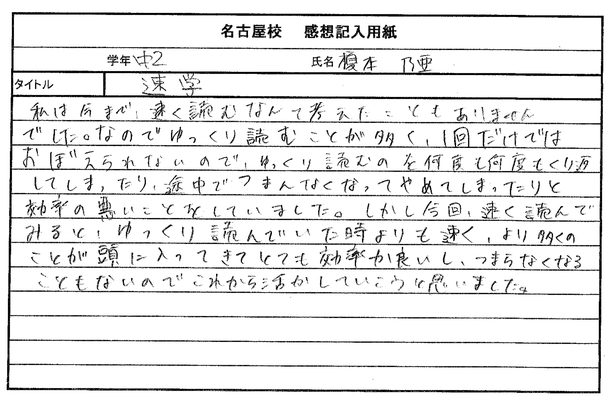 名古屋校 感想記入用紙
学年 中2 氏名 榎本 乃亜
タイトル 速学
私は今まで、速く読むなんて考えたこともありません
でした。なのでゆっくり読むことが多く、1回だけでは
おぼえられないので、ゆっくり読むのを何度も何度もくり返
してしまったり、途中でつまんなくなってやめてしまったりと
効率の悪いことをしていました。しかし今回、速く読んで
みると、ゆっくり読んでいた時よりも速く、より多くの
ことが頭に入ってきてとても効率が良いし、つまらなくなる
こともないのでこれから活かしていこうと思いました。